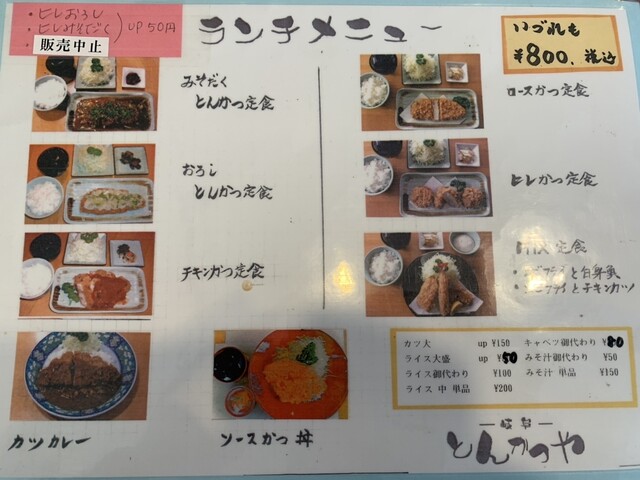 ・ヒレおろし
・ヒレみそだく
UP 50円
販売中止
ランチメニュー
いづれも
¥800、税込
みそだく
とんかつ定食
おろし
とんかつ定食
チキンかつ定食
ロースかつ定食
ヒレかつ定食
定食
と白身魚
フライとチキンカツ
カツカレー
ソースかつ丼
カツ大 up ¥150
ライス大盛 up ¥50
ライス御代わり ¥100
ライス 中 単品 ¥200
キャベツ御代わり ¥80
みそ汁御代わり ¥50
みそ汁 単品 ¥150
とんかつや